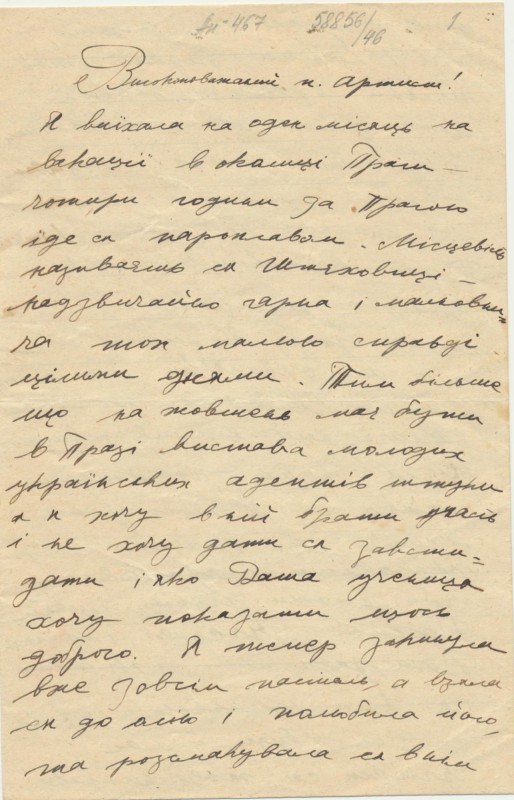 Ап-467 58856/46 1
Високоповажаний п. Артист!
Я виїхала на оден місяць на
вакації в околиці Праги —
чотири години за Прагою
їде ся пароплавом. Місцевість
називаєть ся Штєховіці —
надзвичайно гарна і мальовни-
ча тож малюю справді
цілими днями. Тим більше
що на жовтень має бути
в Празі вистава молодих
українських адептів штуки
а я хочу в ній брати участь
і не хочу дати ся завсти=
дати і яко Ваша учениця
хочу показати щось
доброго. Я тепер закинула
вже зовсім пастель, а взяла
ся до олію і полюбила його,
та розсмакувала ся в нім